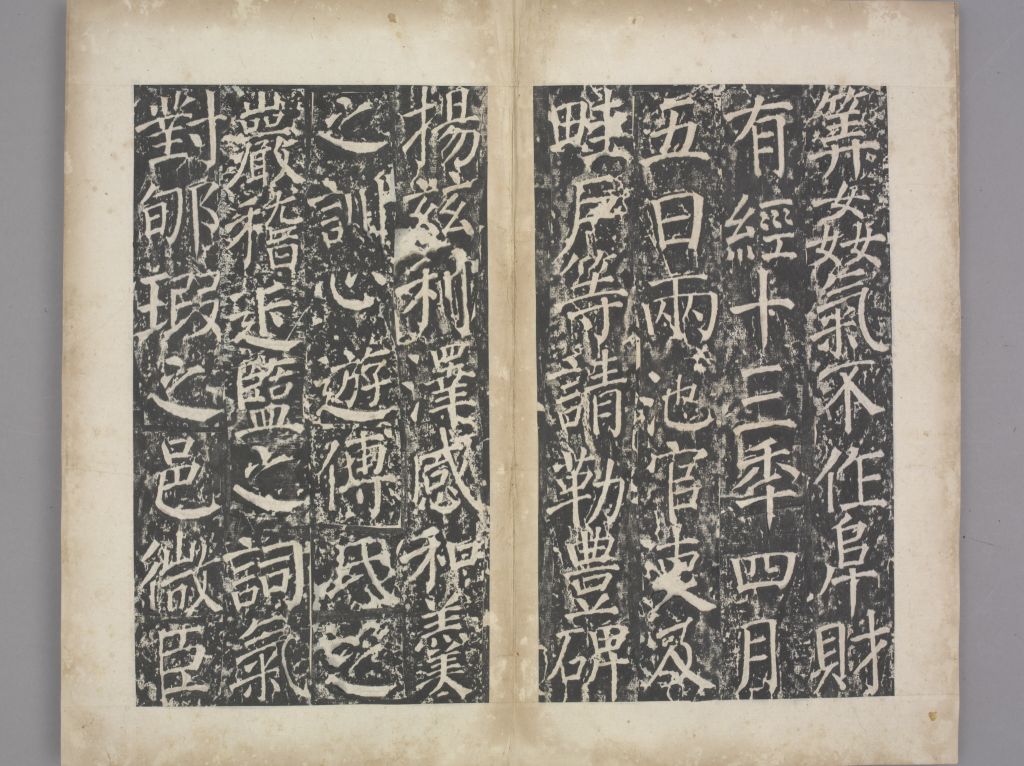 筭姦氣不作阜財
有經十三年四月
五日兩池官吏及
畦戶等請勒豐碑
揚兹利澤感和羹
之訓心遊傅氏之
巖稽近監之詞氣
對郇瑕之邑微臣